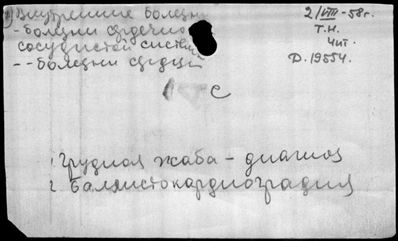 1) Внутренние болезни
- болезни сердечно
сосудистой систем
-- болезни сердца
2/VIII-58г.
Т.Н.
Чит.
D. 19554.
С
1 Грудная жаба - диагноз
2 Баллистокардиография